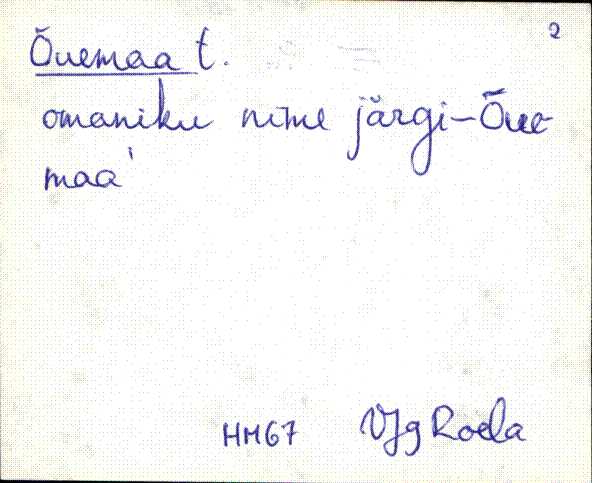 2
Õuemaa t.
omaniku nime järgi-Õue
maa'
HM67 VJg Roela